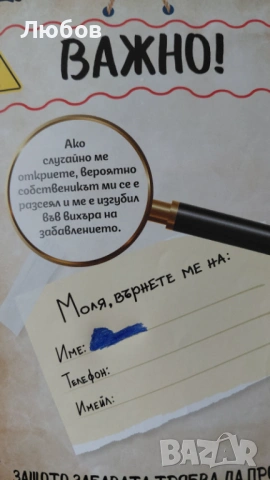 Любов
ВАЖНО!
Ако
случайно ме
откриете, вероятно
собственикът ми се е
разсеял и ме е изгубил
във вихъра на
забавлението.
Моля, върнете ме на:
Име:
Телефон:
Имейл:
ЗАЩОТО ЗАБАВАТА ТРЯБВА ДА
bazar